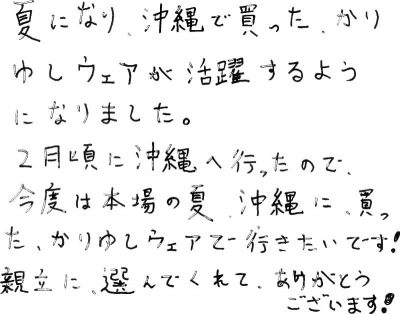 夏になり、沖縄で買った、かり
ゆしウェアが活躍するよう
になりました。
2月頃に沖縄へ行ったので、
今度は本場の夏、沖縄に、買っ
た、かりゆしウェアで行きたいです!
親立に、選んでくれて、ありがとう
ございます!